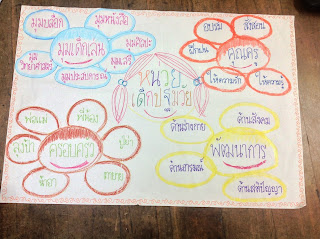 มุมบล็อก
มุมหนังสือ
มุมศิลปะ
มุมเสรี
มุมประสบการณ์
วิทยาศาสตร์
มุมเด็กเล่น
หน่วย
เด็กปฐมวัย
อบรม
สั่งสอน
ฝึกฝน
ให้ความรัก
ให้ความรู้
คุณครู
พ่อแม่
พี่น้อง
ปู่ย่า
ตายาย
น้าอา
ลุงป้า
ครอบครัว
ด้านร่างกาย
ด้านสังคม
ด้านอารมณ์
ด้านสติปัญญา
พัฒนาการ